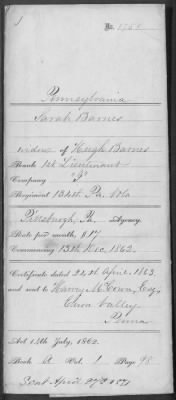 No. 1768
Pennsylvania
Sarah Barnes
widow of Hugh Barnes
Rank 1st Lieutenant
Company "F"
Regiment 134th Pa. Vols
Pittsburgh, Pa. Agency
Rate per month, $17
Commencing 13th Dec, 1862.
Certificate dated 24th April, 1863.
and sent to Harry McCown, Esq,
Valley
Penna
Act 14th July, 1862.
Book A Vol. 1 Page 98
April